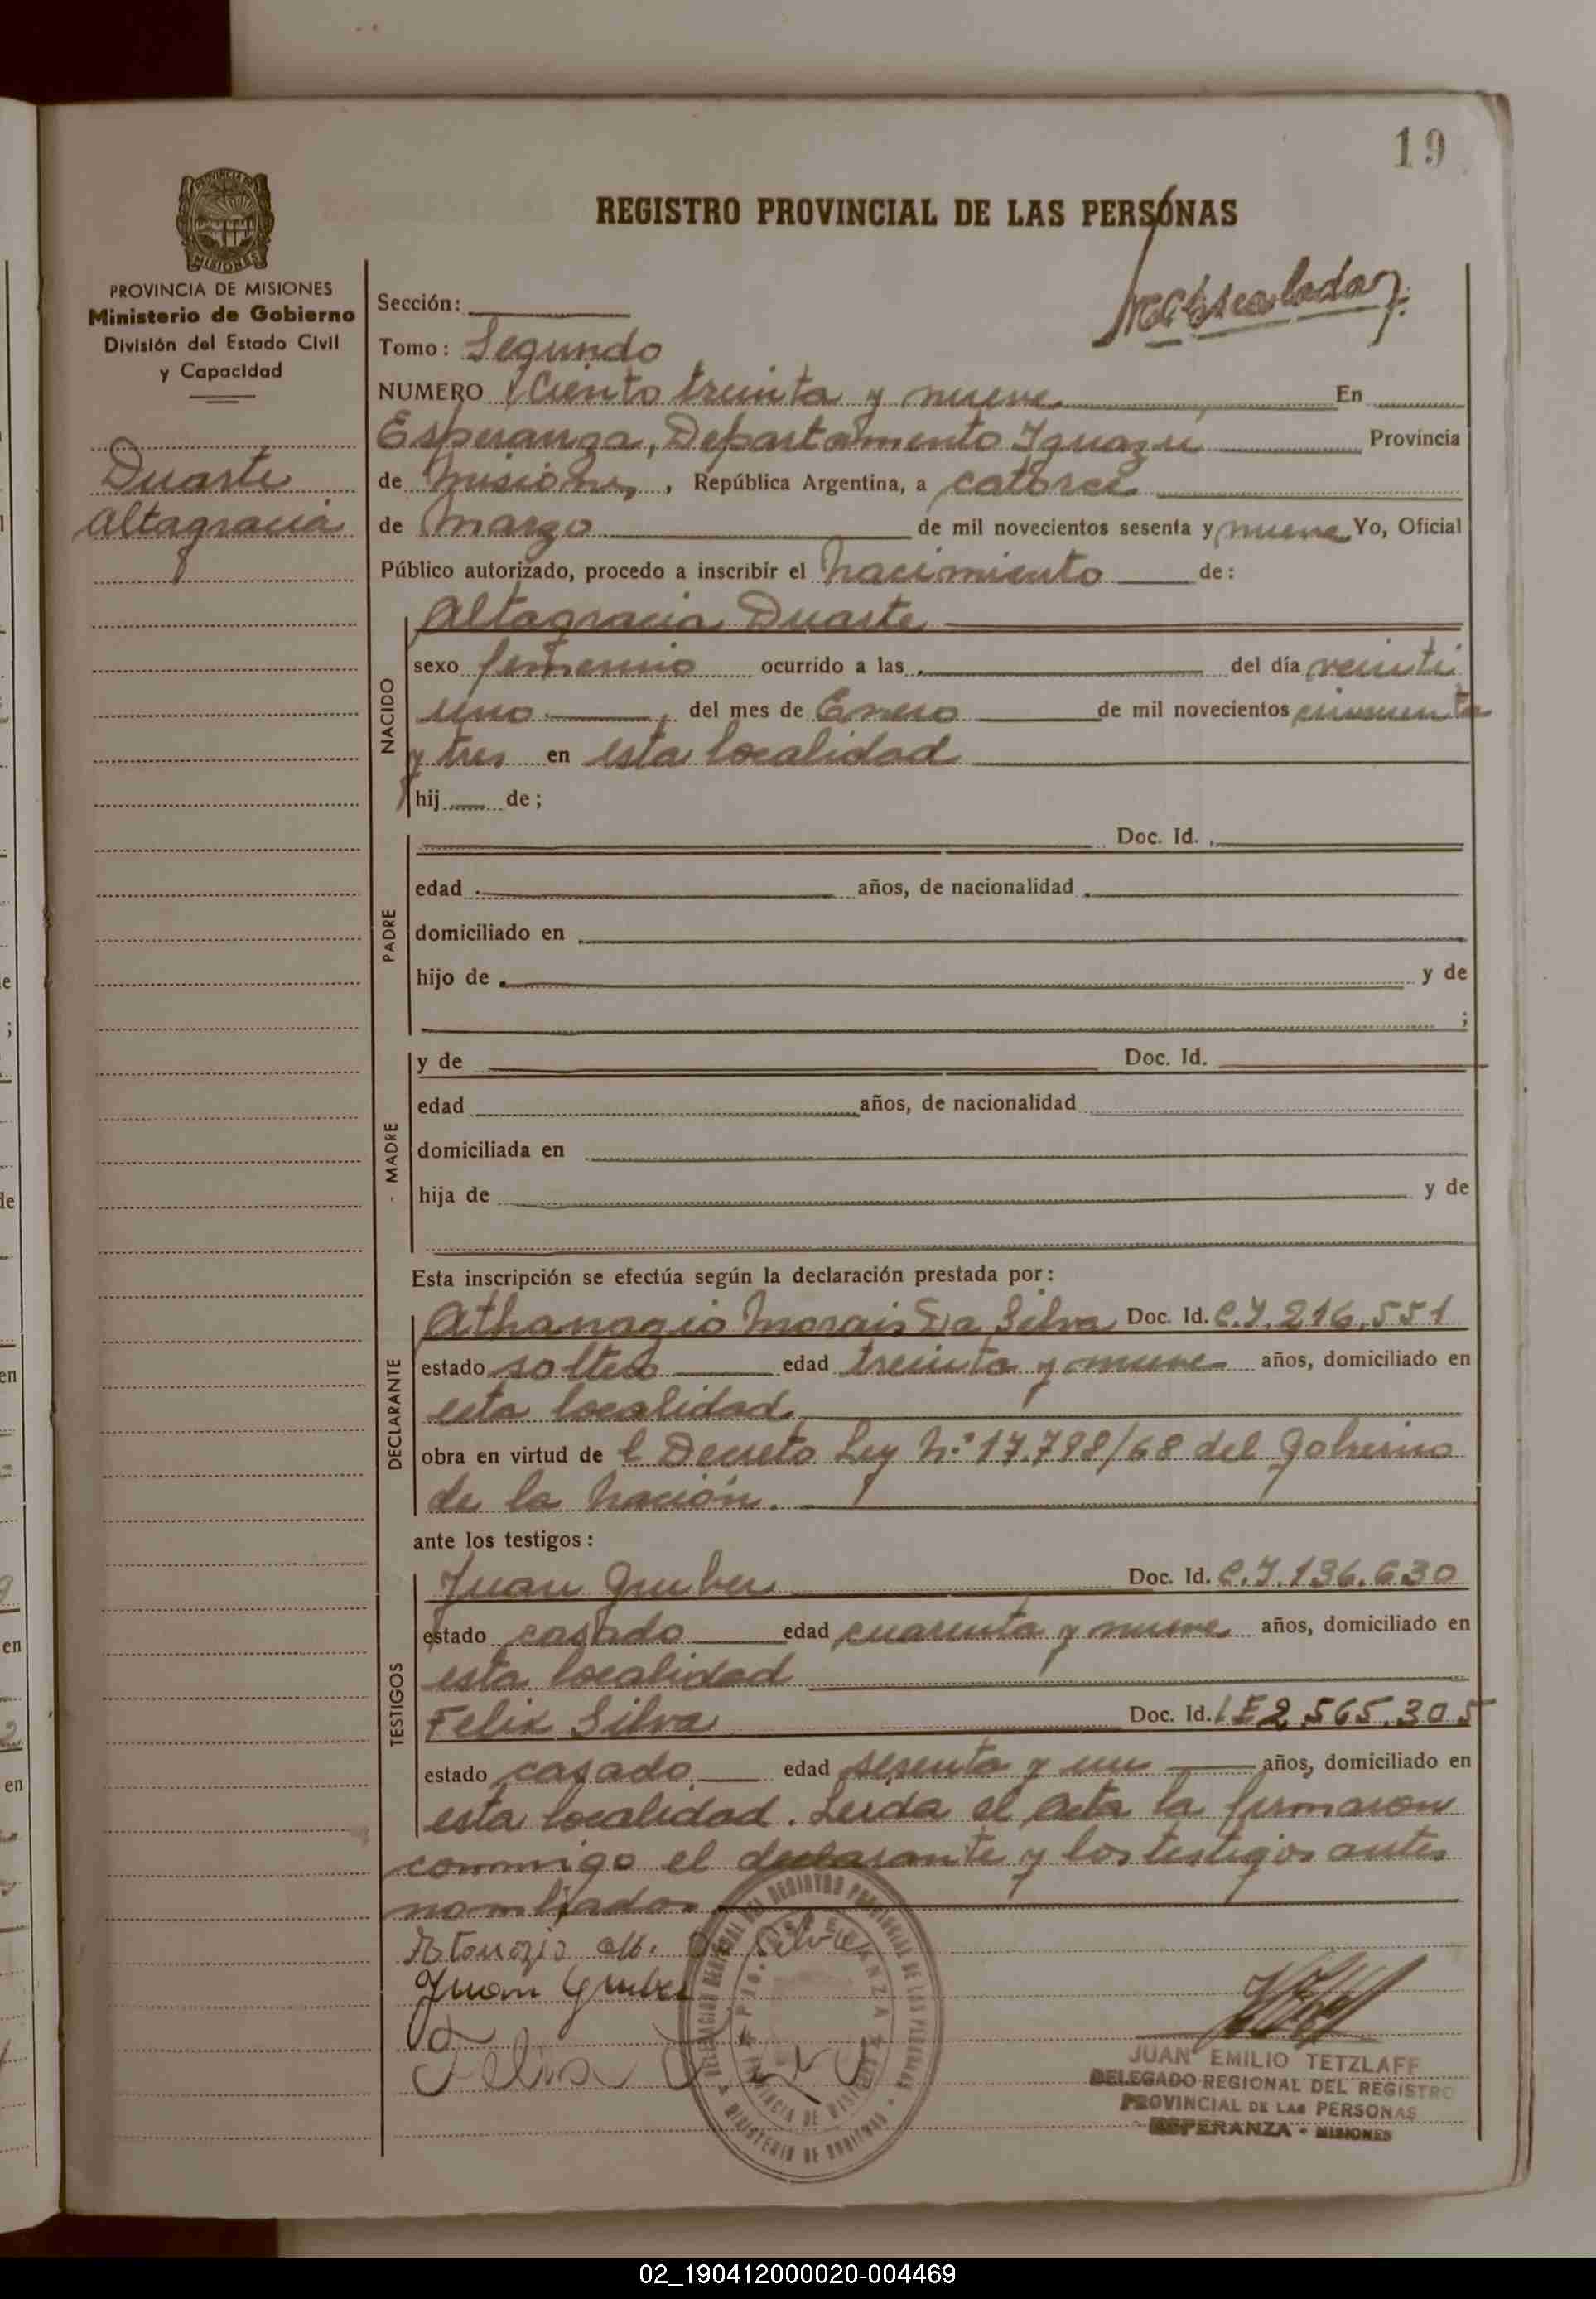 19
REGISTRO PROVINCIAL DE LAS PERSONAS
PROVINCIA DE
MISIONES
PROVINCIA DE MISIONES
Ministerio de Gobierno
División del Estado Civil
y Capacidad
Duarte
Altagracia
Sección:
Tomo: Segundo
NUMERO Ciento treinta y nueve En
Esperanza, Departamento Iguazú Provincia
de Misiones, República Argentina, a catorce
de Marzo de mil novecientos sesenta y nueve Yo, Oficial
Público autorizado, procedo a inscribir el nacimiento de:
NACIDO
Altagracia Duarte
sexo femenino ocurrido a las del día veinti
uno , del mes de Enero de mil novecientos cincuenta
y tres en esta localidad
hij de;
PADRE
Doc. Id.
edad años, de nacionalidad
domiciliado en
hijo de y de
;
MADRE
y de Doc. Id.
edad años, de nacionalidad
domiciliada en
hija de y de
Esta inscripción se efectúa según la declaración prestada por:
DECLARANTE
Athanagio Morais Da Silva Doc. Id. C.I. 216.551
estado soltero edad treinta y nueve años, domiciliado en
esta localidad.
obra en virtud de l Decreto Ley N.° 17.798/68 del Gobierno
de la Nación.
ante los testigos:
TESTIGOS
Juan Gruber Doc. Id. C.I. 136.630
estado casado edad cuarenta y nueve años, domiciliado en
esta localidad
Felix Silva Doc. Id. LE 2.565.305
estado casado edad sesenta y un años, domiciliado en
esta localidad. Leida el acta la firmaron
conmigo el declarante y los testigos antes
nombrados.
Da Silva
Juan Gruber
Felix Silva
JUAN EMILIO TETZLAFF
DELEGADO REGIONAL DEL REGISTRO
PROVINCIAL DE LAS PERSONAS
ESPERANZA - MISIONES
02_190412000020-004469